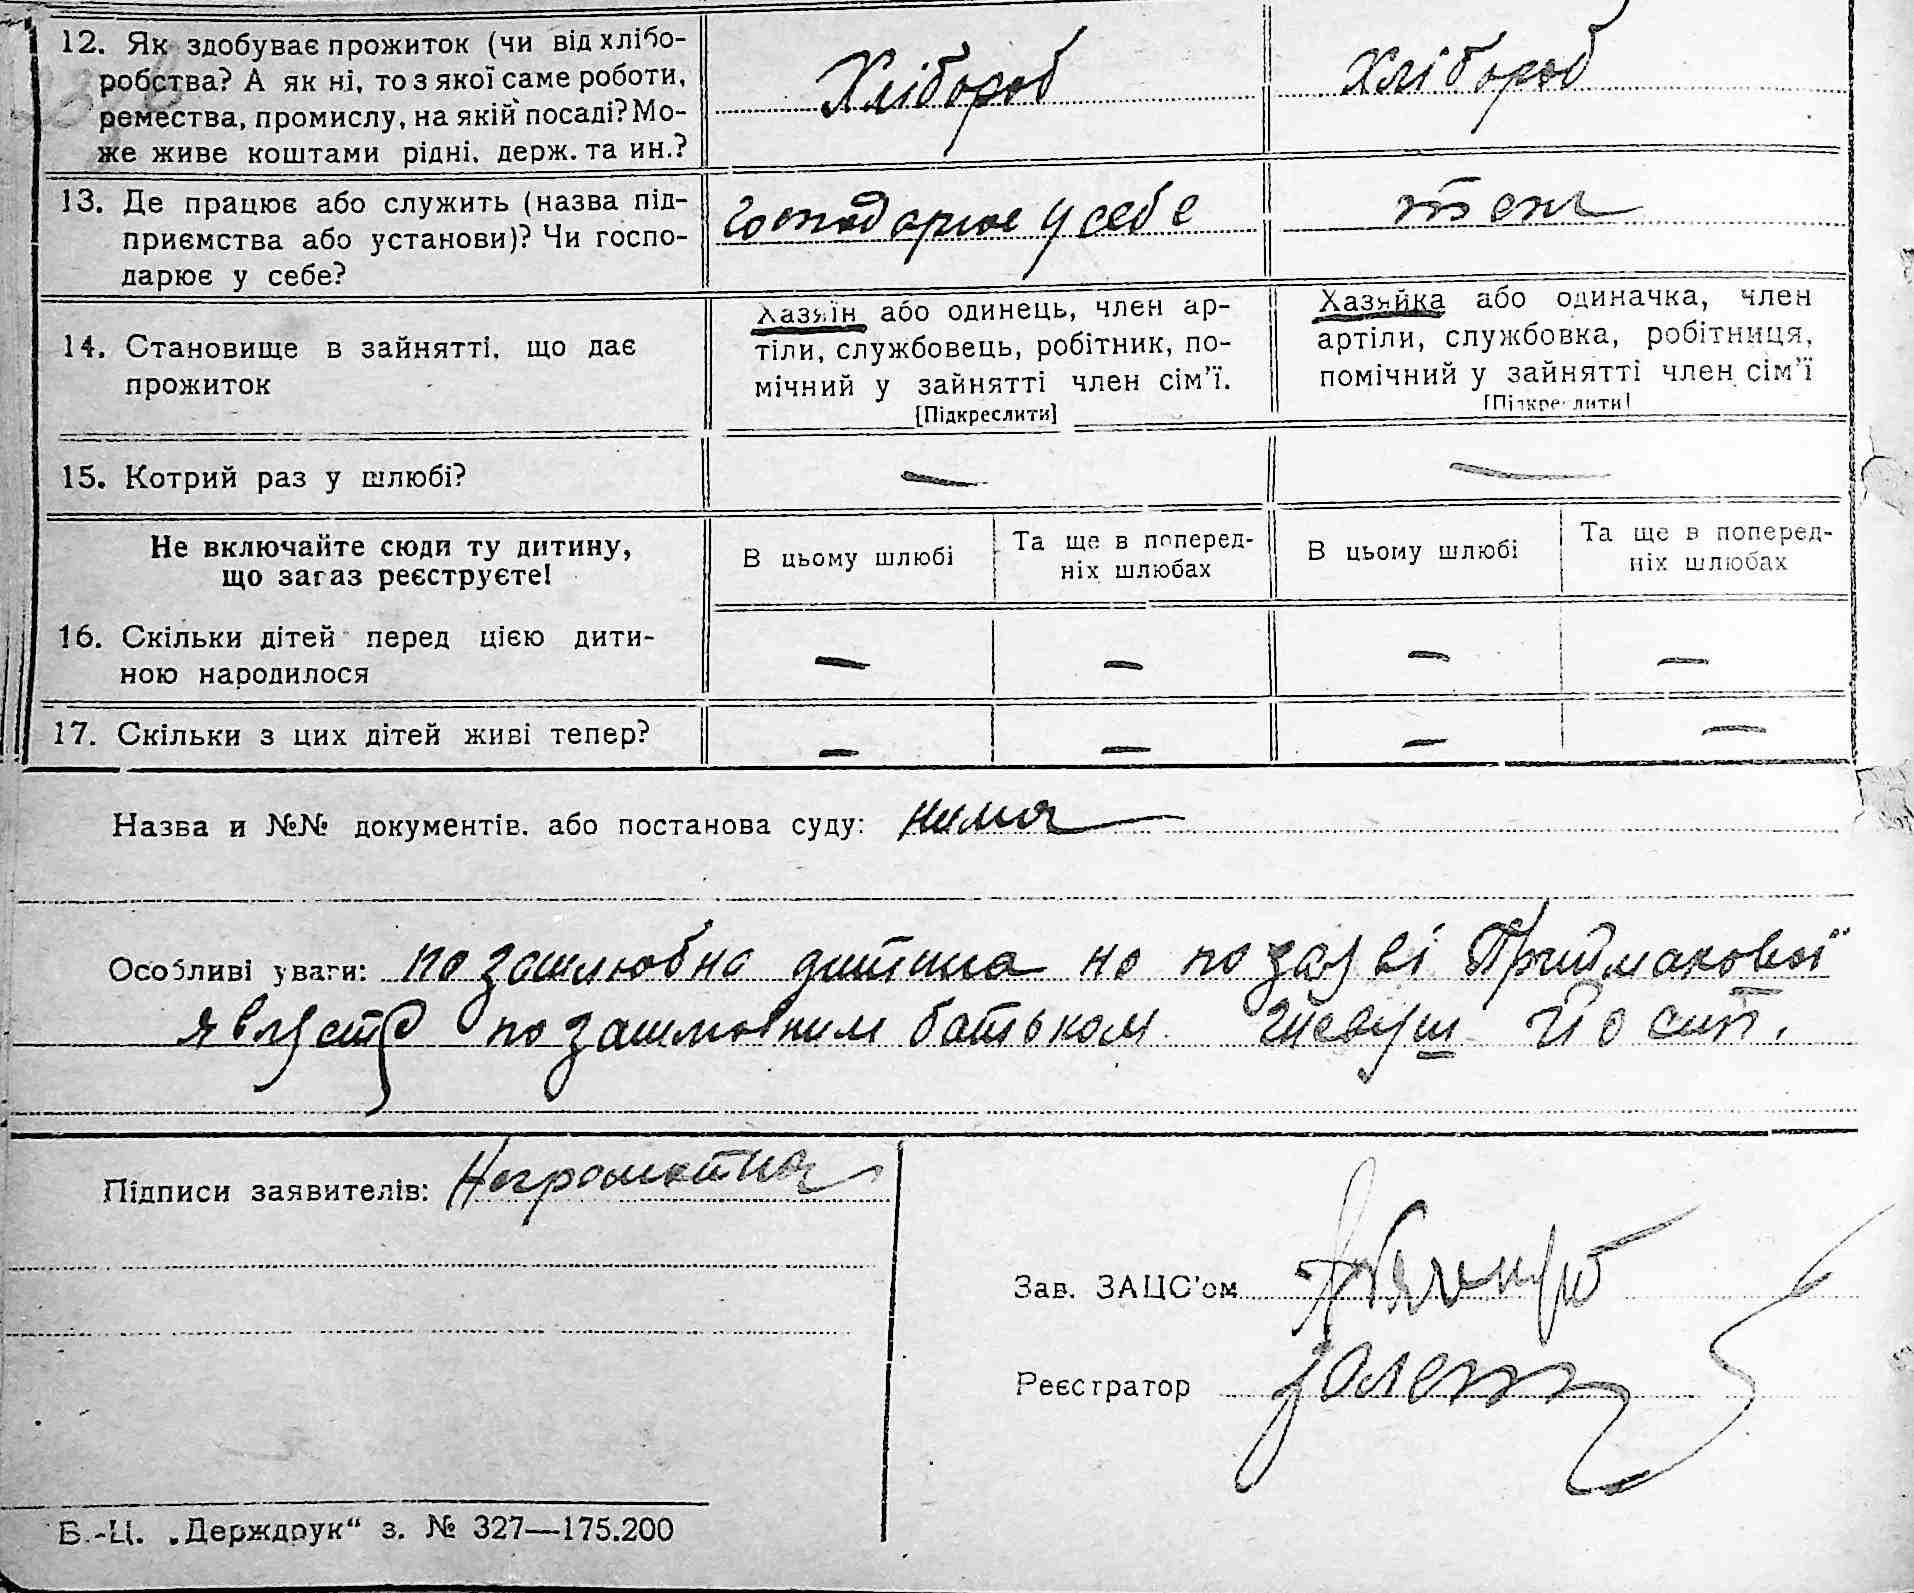 12. Як здобуває прожиток (чи від хлібо-
робства? А як ні, то з якої саме роботи,
ремества, промислу, на якій посаді? Мо-
же живе коштами рідні, держ. та ин.?
Хлібороб
Хлібороб
13. Де працює або служить (назва під-
приємства або установи)? Чи госпо-
дарює у себе?
господарює у себе
теж
14. Становище в зайнятті, що дає
прожиток
Хазяїн або одинець, член ар-
тіли, службовець, робітник, по-
мічний у зайнятті член сім'ї.
[Підкреслити]
Хазяйка або одиначка, член
артіли, службовка, робітниця,
помічний у зайнятті член сім'ї
[Підкреслити]
15. Котрий раз у шлюбі?
—
—
Не включайте сюди ту дитину,
що зараз реєструєте!
В цьому шлюбі
Та ще в поперед-
ніх шлюбах
В цьому шлюбі
Та ще в поперед-
ніх шлюбах
16. Скільки дітей перед цією дити-
ною народилося
— — — —
17. Скільки з цих дітей живі тепер?
— — — —
Назва и №№ документів, або постанова суду: нима
Особливі уваги: позашлюбна дитина но по заяві Приймакової
являєтся позашлюбним батьком Йосип.
Підписи заявителів: Неграмотна
Зав. ЗАЦС'ом
Реєстратор
Б.-Ц. „Держдрук“ з. № 327—175.200